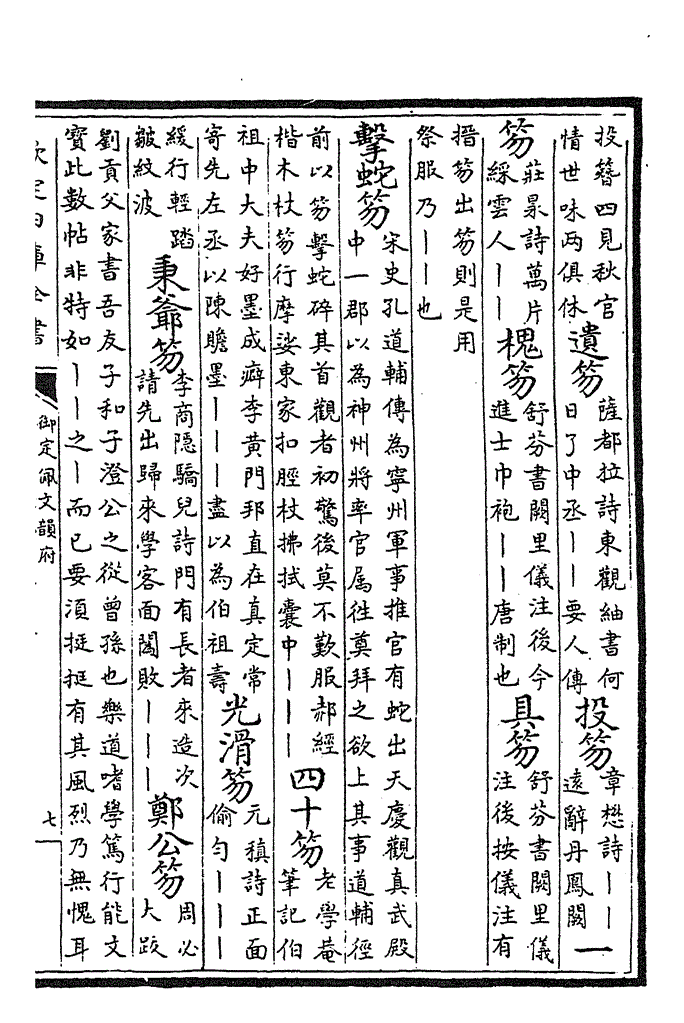 投簪四見秋官
情世味两俱休
遺笏
薩都拉詩東觀紬書何
日了中丞丨丨要人傳
投笏
章懋詩丨丨
逺辭丹鳳闕
一
笏
莊㫤詩萬片
綵雲人丨丨
槐笏
舒芬書闕里儀注後今
進士巾袍丨丨唐制也
具笏
舒芬書闕里儀
注後按儀注有
搢笏出笏則是用
祭服乃丨丨也
擊蛇笏
宋史孔道輔傳為寧州軍事推官有蛇出天慶觀真武殿
中一郡以為神州將率官属徃奠拜之欲上其事道輔徑
前以笏擊蛇碎其首觀者初驚後莫不歎服郝經
楷木杖笏行摩娑東家扣脛杖拂拭囊中丨丨丨
四十笏
老學菴
筆記伯
祖中大夫好墨成癖李黄門邦直在真定常
寄先左丞以陳贍墨丨丨丨盡以為伯祖壽
光滑笏
元稹詩正面
偷匀丨丨丨
緩行輕踏
皺紋波
秉爺笏
李商隱驕兒詩門有長者來造次
請先出歸來學客面闖敗丨丨丨
鄭公笏
周必
大跋
劉貢父家書吾友子和子澄公之從曾孫也樂道嗜學篤行能文
寳此數帖非特如丨丨之丨而已要湏挺挺有其風烈乃無愧耳
欽定四庫全書
御定佩文韻府
七